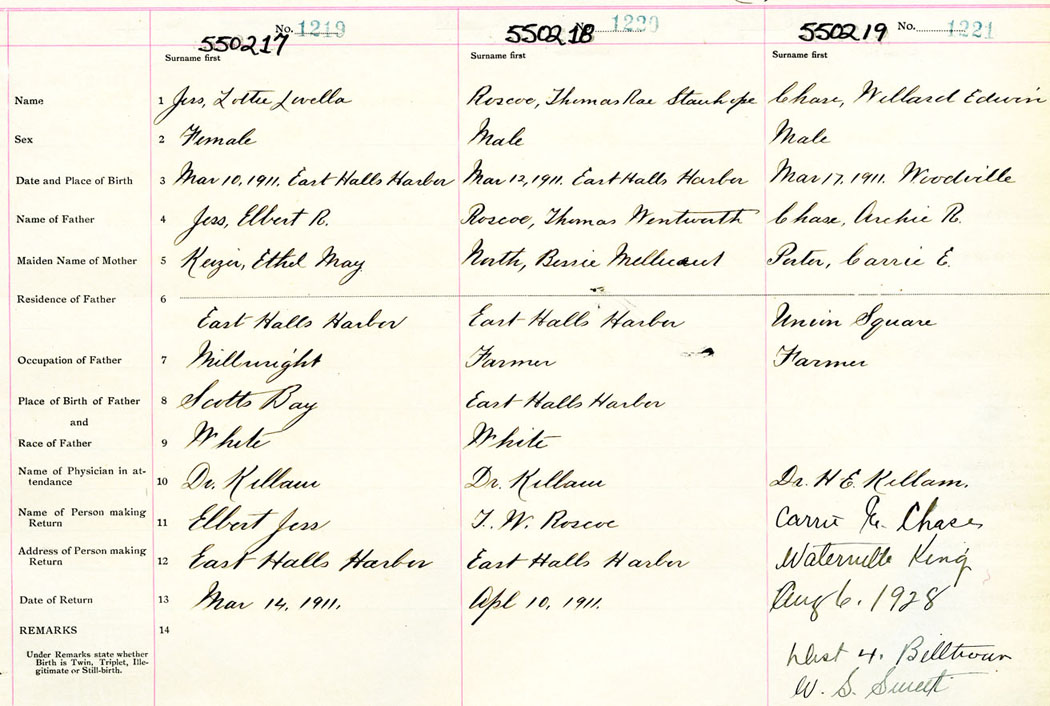 550217 No. 1219 550218 No. 1220 550219 No. 1221
Surname first Surname first Surname first
Name 1 Jess, Lottie Lovella Roscoe, Thomas Rae Stanhope Chase, Willard Edwin
Sex 2 Female Male Male
Date and Place of Birth 3 Mar 10, 1911. East Halls Harbor Mar 12, 1911. East Halls Harbor Mar 17, 1911. Woodville
Name of Father 4 Jess, Elbert R. Roscoe, Thomas Wentworth Chase, Archie R.
Maiden Name of Mother 5 Keizer, Ethel May North, Bessie Porter, Carrie E.
Residence of Father 6
East Halls Harbor East Halls Harbor Union Square
Occupation of Father 7 Millwright Farmer Farmer
Place of Birth of Father 8 Scotts Bay East Halls Harbor
and
Race of Father 9 White White
Name of Physician in at-
tendance 10 Dr. Killam Dr. Killam Dr. H E. Killam.
Name of Person making
Return 11 Elbert Jess T. W. Roscoe Carrie Chase
Address of Person making
Return 12 East Halls Harbor East Halls Harbor Waterville King
Date of Return 13 Mar 14, 1911. Apl 10, 1911. Aug 6. 1928
REMARKS 14
Under Remarks state whether
Birth is Twin, Triplet, Ille-
gitimate or Still-birth.
Dist 4.
W. S.